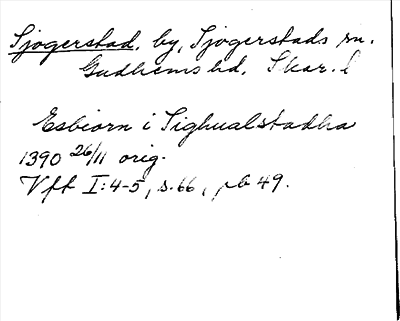 Sjogerstad. by, Sjogerstads sn.
Gudhems hd, Skar. l
Esbiorn i Sighualstadha
1390 26/11 orig.
Vft I:4-5, s.66, pb 49.